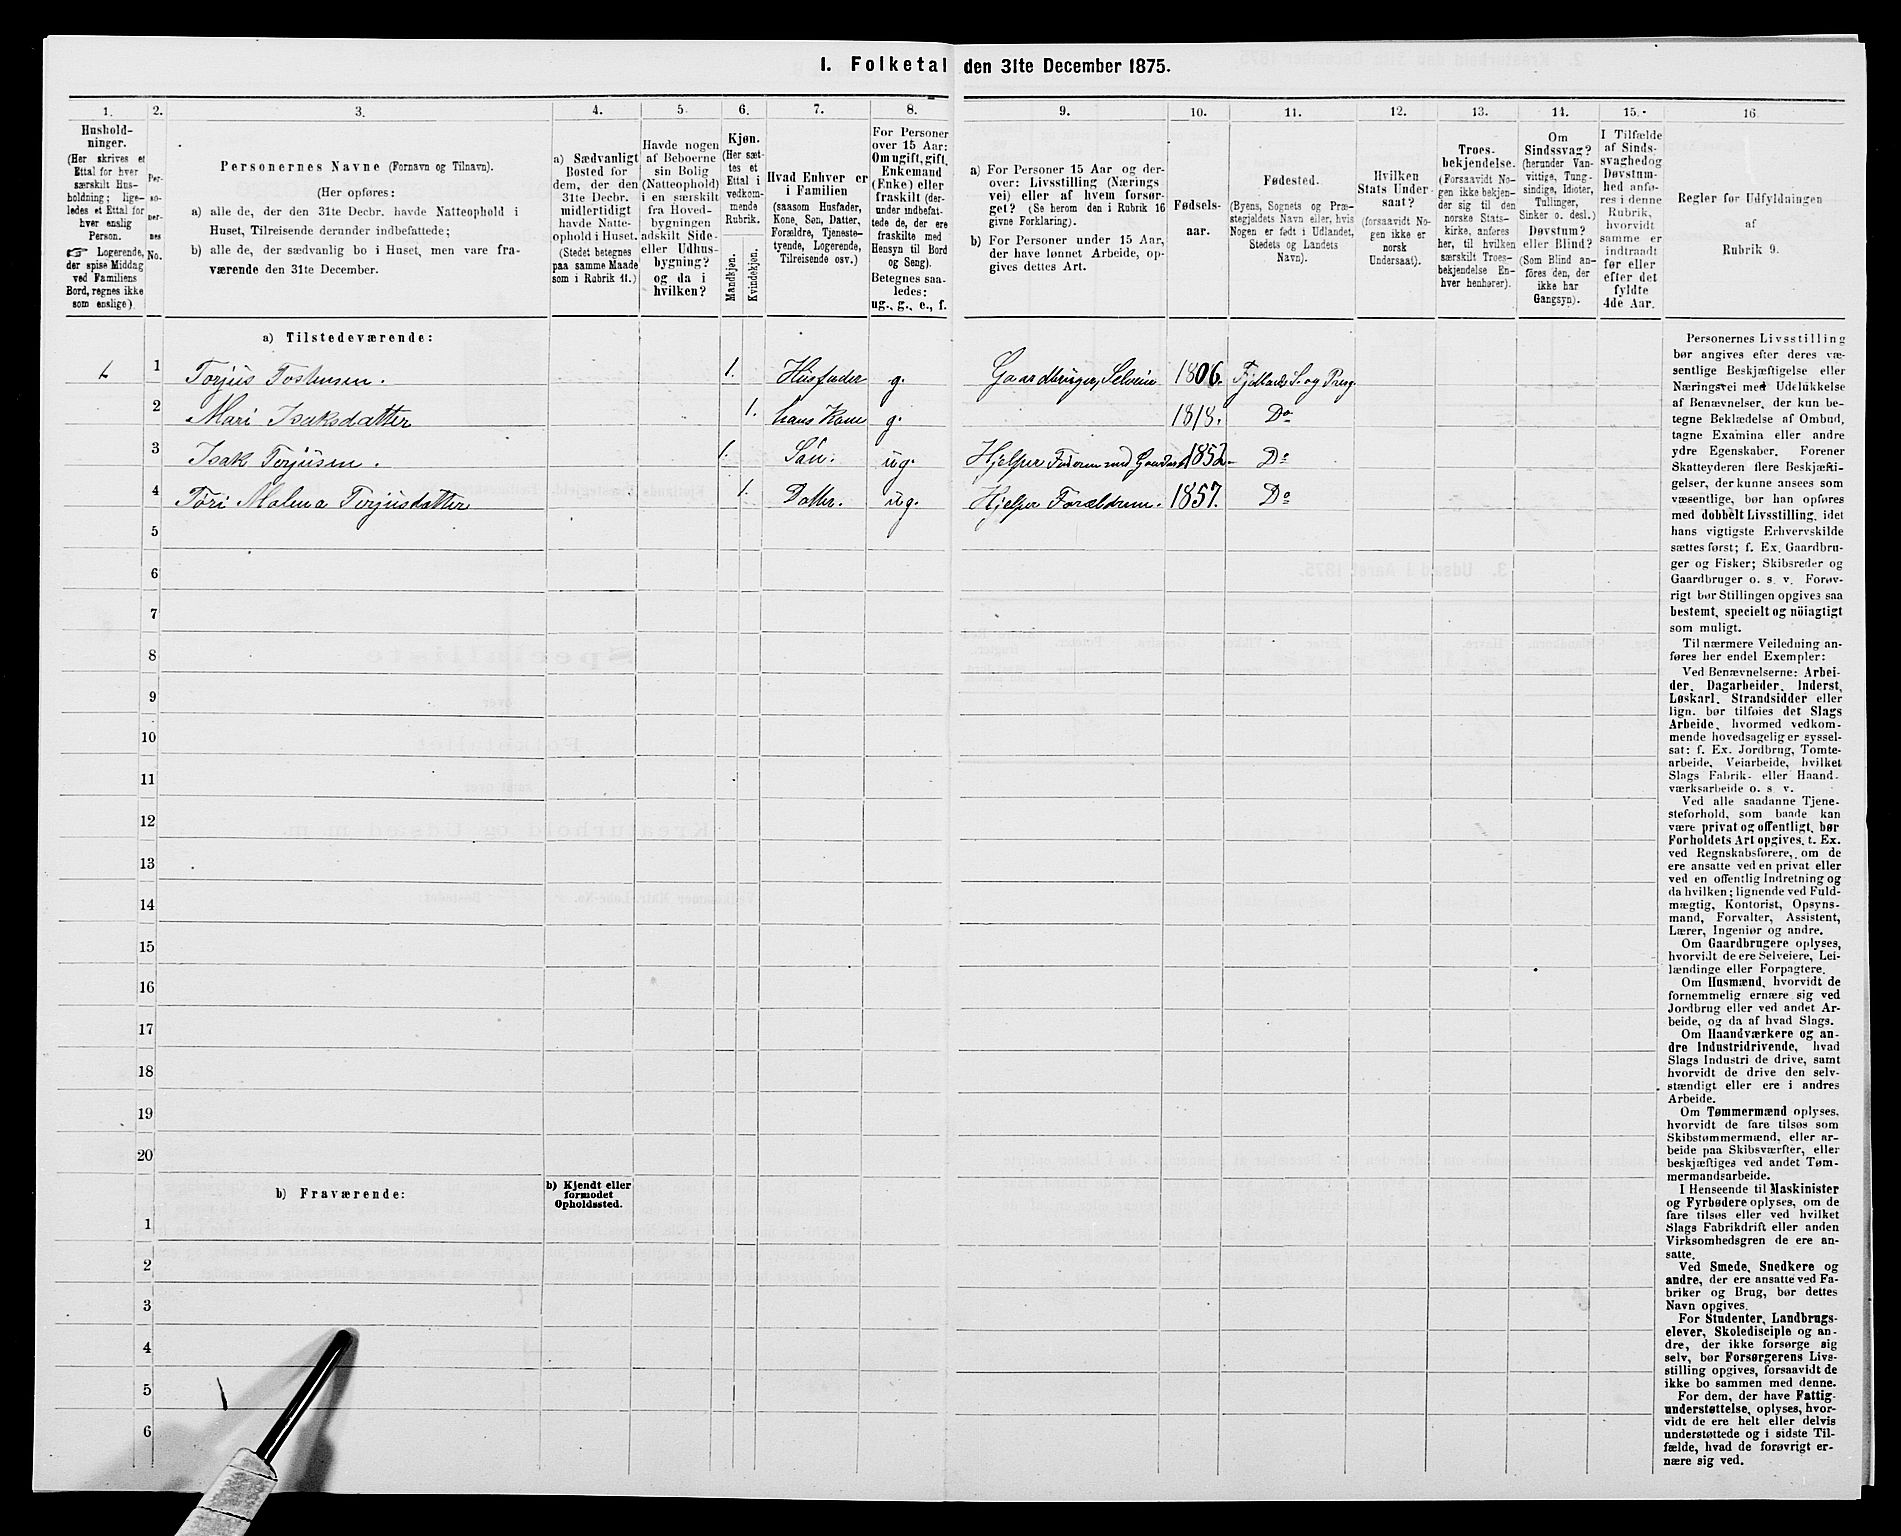 I. Folketal den 31te December 1875.
1. 2. 3. 4. 5. 6. 7. 8. 9. 10. 11. 12. 13. 14. 15. 16
Hushold-
ninger.
(Her skrives et
Ettal for hver
særskilt Hus-
holdning; lige-
ledes et Ettal for
hver enslig
Person.
☞ Logerende,
der spise Middag
ved Familiens
Bord, regnes ikke
som enslige).
Per-
so-
ner-
nes
No.
Personernes Navne (Fornavn og Tilnavn).
(Her opføres:
a) alle de, der den 31te Decbr. havde Natteophold i
Huset, Tilreisende derunder indbefattede;
b) alle de, der sædvanlig bo i Huset, men vare fra-
værende den 31te December.
a) Sædvanligt
Bosted for
dem, der den
31te Decbr.
midlertidigt
havde Natte-
ophold i Huset.
(Stedet betegnes
paa samme Maade
som i Rubrik 11.)
Havde nogen
af Beboerne
sin Bolig
(Natteophold)
i en særskilt
fra Hoved-
bygningen
adskilt Side-
eller Udhus-
bygning?
og da i
hvilken?
Kjøn.
(Her sæt-
tes et
Ettal i
vedkom-
mende
Rubrik.
Mandkjøn.
Kvindekjøn.
Hvad Enhver er
i Familien
(saasom Husfader,
Kone, Søn, Datter,
Forældre, Tjeneste-
tyende, Logerende,
Tilreisende osv.)
For Personer
over 15 Aar:
Om ugift, gift,
Enkemand
(Enke) eller
fraskilt (der-
under indbefat-
tede de, der ere
fraskilte med
Hensyn til Bord
og Seng).
Betegnes saa-
ledes:
ug., g., e., f.
a) For Personer 15 Aar og der-
over: Livsstilling (Nærings-
vei) eller af hvem forsør-
get? (Se herom den i Rubrik 16
givne Forklaring).
b) For Personer under 15 Aar,
der have lønnet Arbeide, op-
gives dettes Art.
Fødsels-
aar.
Fødested.
(Byens, Sognets og Præ-
stegjeldets Navn eller, hvis
Nogen er født i Udlandet,
Stedets og Landets
Navn).
Hvilken
Stats Under-
saat?
(forsaavidt No-
gen ikke er
norsk
Undersaat).
Troes-
bekjendelse.
(Forsaavidt No-
gen ikke bekjen-
der sig til den
norske Stats-
kirke, anføres
her, til hvilken
særskilt Troes-
bekjendelse En-
hver henhører).
Om
Sindssvag?
(herunder Van-
vittige, Tung-
sindige, Idioter,
Tullinger,
Sinker o. desl.)
Døvstum?
eller Blind?
(Som Blind an-
føres den, der
ikke har
Gangsyn).
I Tilfælde
af Sinds-
svaghed og
Døvstum-
hed anfø-
res i denne
Rubrik,
hvorvidt
samme er
indtraadt
før eller
efter det
fyldte
4de Aar.
Regler for Udfyldningen
af
Rubrik 9.
a) Tilstedeværende:
1 1 Torjus Tostensen. 1. Husfader g. Gaardbruger, Selveier 1806. Fjotland S. og Præg.
2 Mari Isaksdatter 1. hans Kone g. 1818. Do
3 Isak Torjusen. 1. Søn. ug. Hjelper Faderen med Gaarden 1852. Do
4 Tori Malena Torjusdatter 1. Datter. ug. Hjelper Forældrene. 1857. Do
5
6
7
8
9
10
11
12
13
14
15
16
17
18
19
20
b) Fraværende:
b) Kjendt eller
formodet
Opholdssted.
1
2
3
4
5
6
Personernes Livsstilling
bør angives efter deres væ-
sentlige Beskjæftigelse eller
Næringsvei med Udelukkelse
af Benævnelser, der kun be-
tegne Beklædelse af Ombud,
tagne Examina eller andre
ydre Egenskaber. Forener
Skatteyderen flere Beskjæfti-
gelser, der kunne ansees som
væsentlige, bør han opføres
med dobbelt Livsstilling, idet
hans vigtigste Erhvervskilde
sættes først; f. Ex. Gaardbru-
ger og Fisker; Skibsreder og
Gaardbruger o. s. v. Forøv-
rigt bør Stillingen opgives saa
bestemt, specielt og nöiagtigt
som muligt.
Til nærmere Veiledning an-
føres her endel Exempler:
Ved Benævnelserne: Arbei-
der, Dagarbeider, Inderst,
Løskarl, Strandsidder eller
lign. bør tilføies det Slags
Arbeide, hvormed vedkom-
mende hovedsagelig er syssel-
sat: f. Ex. Jordbrug, Tomte-
arbeide, Veiarbeide, hvilket
Slags Fabrik- eller Haand-
værksarbeide o. s. v.
Ved alle saadanne Tjene-
steforhold, som baade kan
være privat og offentligt, bør
Forholdets Art opgives, t. Ex.
ved Regnskabsførere, om de
ere ansatte ved en privat eller
ved en offentlig Indretning og
da hvilken; lignende ved Fuld-
mægtig, Kontorist, Opsyns-
mand, Forvalter, Assistent,
Lærer, Ingeniør og andre.
Om Gaardbrugere oplyses,
hvorvidt de ere Selveiere, Lei-
lændinge eller Forpagtere.
Om Husmænd, hvorvidt de
fornemmelig ernære sig ved
Jordbrug eller ved andet Ar-
beide, og da af hvad Slags.
Om Haandværkere og an-
dre Industridrivende, hvad
Slags Industri de drive, samt
hvorvidt de drive den selv-
stændigt eller ere i andres
Arbeide.
Om Tømmermænd oplyses,
hvorvidt de fare tilsøs som
Skibstømmermænd, eller ar-
beide paa Skibsværfter, eller
beskjæftiges ved andet Tøm-
mermandsarbeide.
I Henseende til Maskinister
og Fyrbødere oplyses, om de
fare tilsøs eller ved hvilket
Slags Fabrikdrift eller anden
Virksomhedsgren de ere an-
satte.
Ved Smede, Snedkere og
andre, der ere ansatte ved Fa-
briker og Brug, bør dettes
Navn opgives.
For Studenter, Landbrugs-
elever, Skoledisciple og an-
dre, der ikke forsørge sig
selv, bør Forsørgerens Livs-
stilling opgives, forsaavidt de
ikke bo sammen med denne.
For dem, der have Fattig-
understøttelse, oplyses, hvor-
vidt de ere helt eller delvis
understøttede og i sidste Til-
fælde, hvad de forøvrigt er-
nære sig ved.